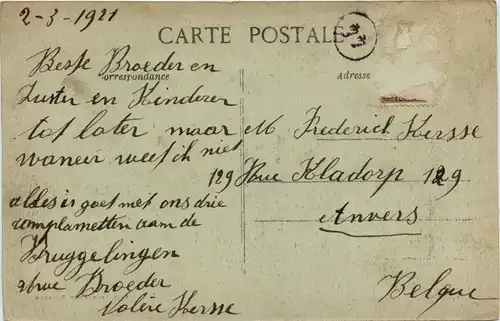 2-3-1921
CARTE POSTALE
Correspondance
Adresse
Beste Broeder en
Zuster en Kinderen
tot later maar
waneer weet ik niet
alles is goet met ons drie
complametten aan de
Bruggelingen
Broeder
Valère Kersse
M Frederich Kersse
129 Rue Kladorp 129
Anvers
Belque